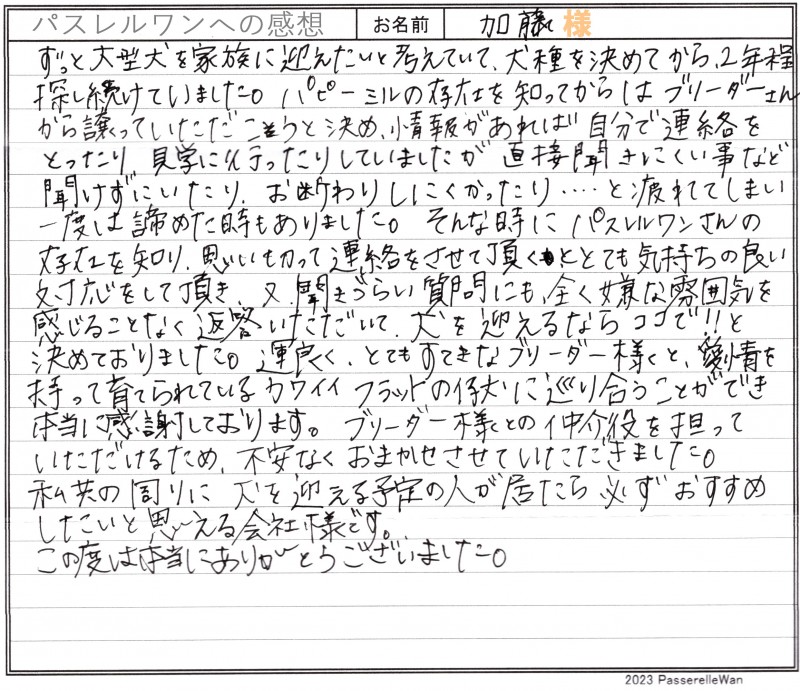 パスレルワンへの感想 お名前 加藤 様
ずっと大型犬を家族に迎えたいと考えていて、犬種を決めてから、2年程
探し続けていました。パピーミルの存在を知ってからはブリーダーさん
から譲っていただこうと決め、情報があれば自分で連絡を
とったり、見学に行ったりしていましたが直接聞きにくい事など
聞けずにいたり、お断わりしにくかったり‥‥と疲れてしまい
一度は諦めた時もありました。そんな時にパスレルワンさんの
存在を知り、思いきって連絡をさせて頂くととても気持ちの良い
対応をして頂き、又、聞きづらい質問にも、全く嫌な雰囲気を
感じることなく返答いただいて、犬を迎えるならココで!!と
決めておりました。運良く、とてもすてきなブリーダー様と、愛情を
持って育てられているカワイイフラットの仔犬に巡り合うことができ
本当に感謝しております。ブリーダー様との仲介役を担って
いただけるため、不安なくおまかせさせていただきました。
私共の周りに犬を迎える予定の人が居たら必ずおすすめ
したいと思える会社様です。
この度は本当にありがとうございました。
2023 PasserelleWan